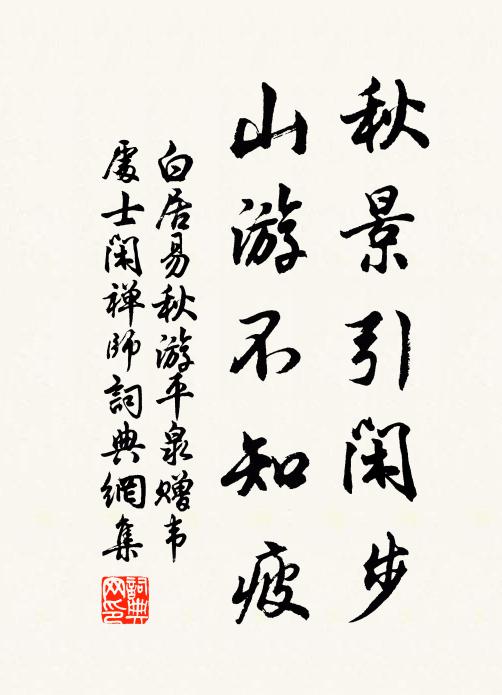 秋景引闲步
山游不知疲
白居易秋游平泉赠韦
處士闲禅師詞典網集
詞典网印